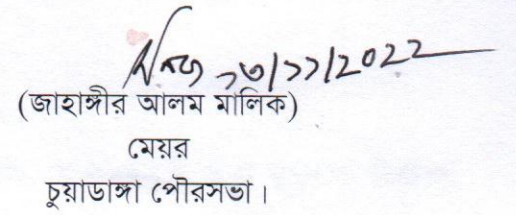 ১৩/১১/2022
(জাহাঙ্গীর আলম মালিক)
মেয়র
চুয়াডাঙ্গা পৌরসভা।